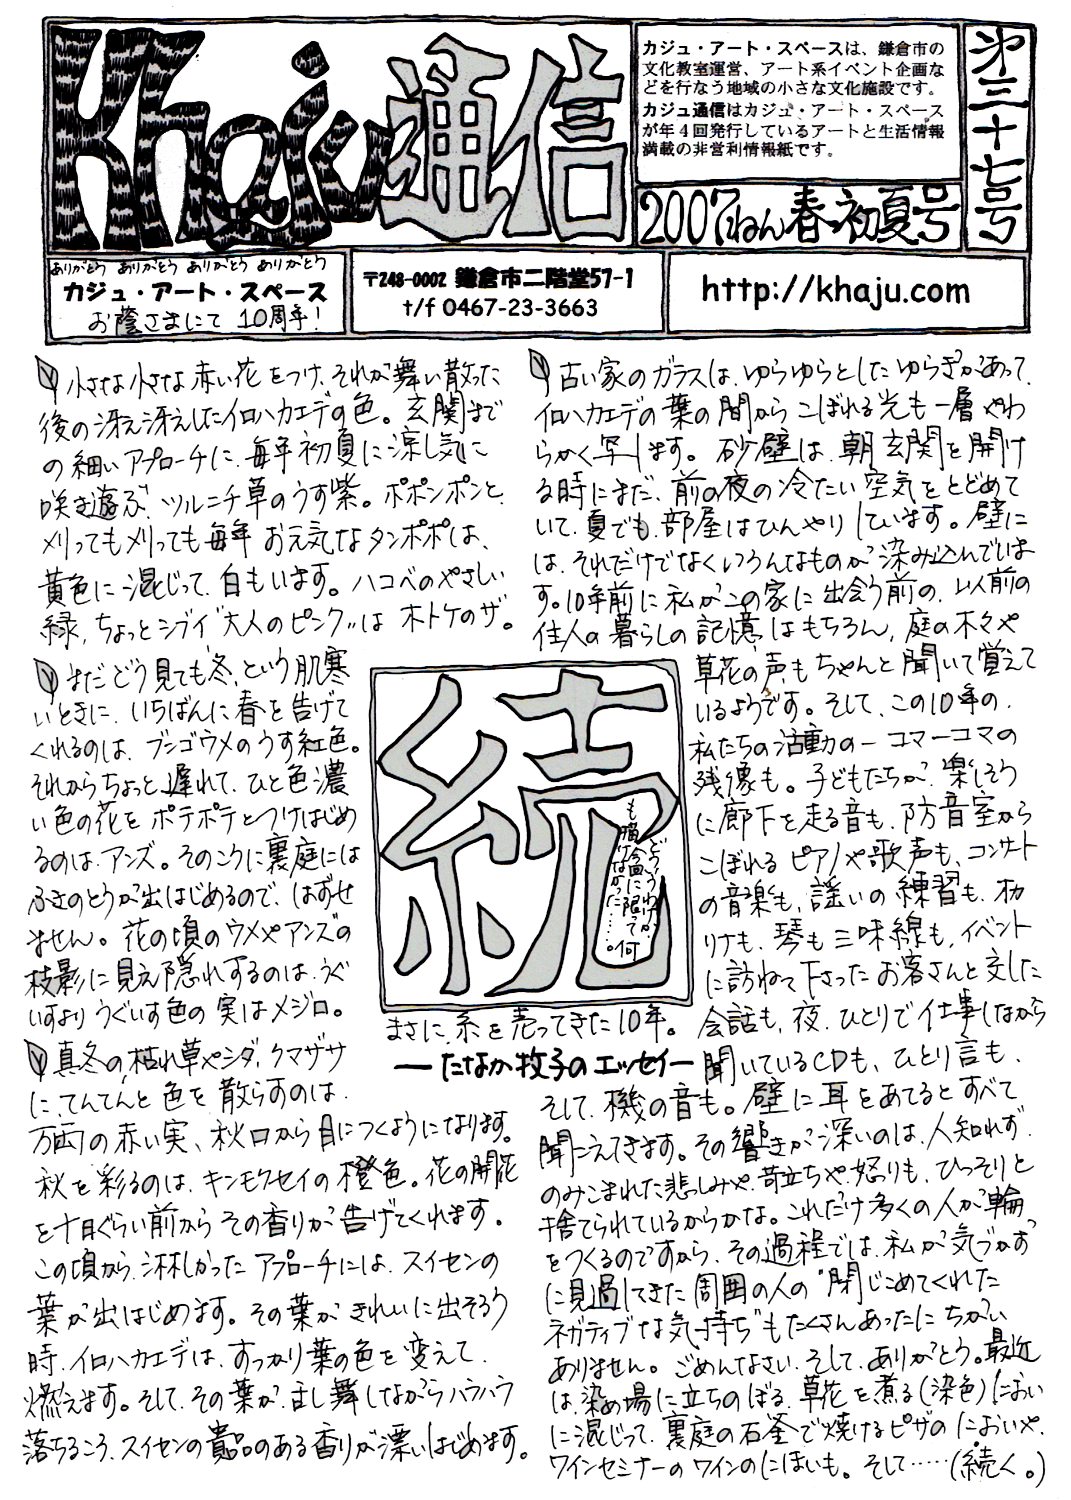 Khaju通信
カジュ・アート・スペースは、鎌倉市の
文化教室運営、アート系イベント企画な
どを行なう地域の小さな文化施設です。
カジュ通信はカジュ・アート・スペース
が年4回発行しているアートと生活情報
満載の非営利情報紙です。
2007ねん春・初夏号
第三十七号
ありがとう ありがとう ありがとう ありがとう
カジュ・アート・スペース
お蔭さまにて 10周年!
〒248-0002 鎌倉市二階堂57-1
t/f 0467-23-3663
http://khaju.com
小さな小さな赤い花をつけ、それが舞い散った
後の冴え冴えしたイロハカエデの色。玄関まで
の細いアプローチに、毎年初夏に涼し気に
咲き遊ぶ、ツルニチ草のうす紫。ポポンポンと、
刈っても刈っても毎年お元気なタンポポは、
黄色に混じって、白もいます。ハコベのやさしい
緑、ちょっとシブイ“大人のピンク”は ホトケのザ。
まだどう見ても“冬”という肌寒
いときに、いちばんに春を告げて
くれるのは、ブンゴウメのうす紅色。
それからちょっと遅れて、ひと色濃
い色の花をポテポテとつけはじめ
るのは、アンズ。そのころに裏庭には
ふきのとうが出はじめるので、はずせ
ません。花の頃のウメやアンズの
枝影に見え隠れするのは、うぐ
いすよりうぐいす色の実はメジロ。
真冬の枯れ草やシダ、クマザサ
に、てんてんと色を散らすのは、
万両の赤い実、秋口から目につくようになります。
秋を彩るのは、キンモクセイの橙色。花の開花
を十日ぐらい前からその香りが告げてくれます。
この頃から、淋しかったアプローチには、スイセンの
葉が出はじめます。その葉がきれいに出そろう
時、イロハカエデは、すっかり葉の色を変えて、
燃えます。そして、その葉が、乱し舞しながらハラハラ
落ちるころ、スイセンの貴品のある香りが漂いはじめます。
続
どういうわけか、
今回に限って、何
も描けなかった……。
まさに、糸を売ってきた10年。
—たなか牧子のエッセイ—
古い家のガラスは、ゆらゆらとしたゆらぎがあって、
イロハカエデの葉の間からこぼれる光も一層やわ
らかく写します。砂壁は、朝玄関を開け
る時にまだ、前の夜の冷たい空気をとどめて
いて、夏でも、部屋はひんやりしています。壁に
は、それだけでなくいろんなものが染み込んでいま
す。10年前に私がこの家に出会う前の、以前の
住人の暮らしの記憶はもちろん、庭の木々や
草花の声もちゃんと聞いて覚えて
いるようです。そして、この10年の、
私たちの活動の一コマ一コマの
残像も。子どもたちが、楽しそう
に廊下を走る音も、防音室から
こぼれるピアノや歌声も、コンサート
の音楽も、謡いの練習も、オカ
リナも、琴も三味線も、イベント
に訪ねて下さったお客さんと交した
会話も、夜、ひとりで仕事しながら
聞いているCDも、ひとり言も、
そして、機の音も。壁に耳をあてるとすべて
聞こえてきます。その響きが深いのは、人知れず、
のみこまれた悲しみや、苛立ちや、怒りも、ひっそりと
捨てられているからかな。これだけ多くの人が輪
をつくるのですから、その過程では、私が気づかず
に見過してきた周囲の人の“閉じこめてくれた
ネガティブな気持ち”もたくさんあったにちがい
ありません。ごめんなさい、そして、ありがとう。最近
は、染め場に立ちのぼる、草花を煮る(染色)におい
に混じって、裏庭の石釜で焼けるピザのにおいや、
ワインセミナーのワインのにほいも。そして……(続く。)